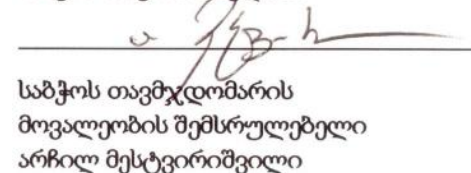 საბჭოს თავმჯდომარის
მოვალეობის შემსრულებელი
არჩილ მესტვირიშვილი